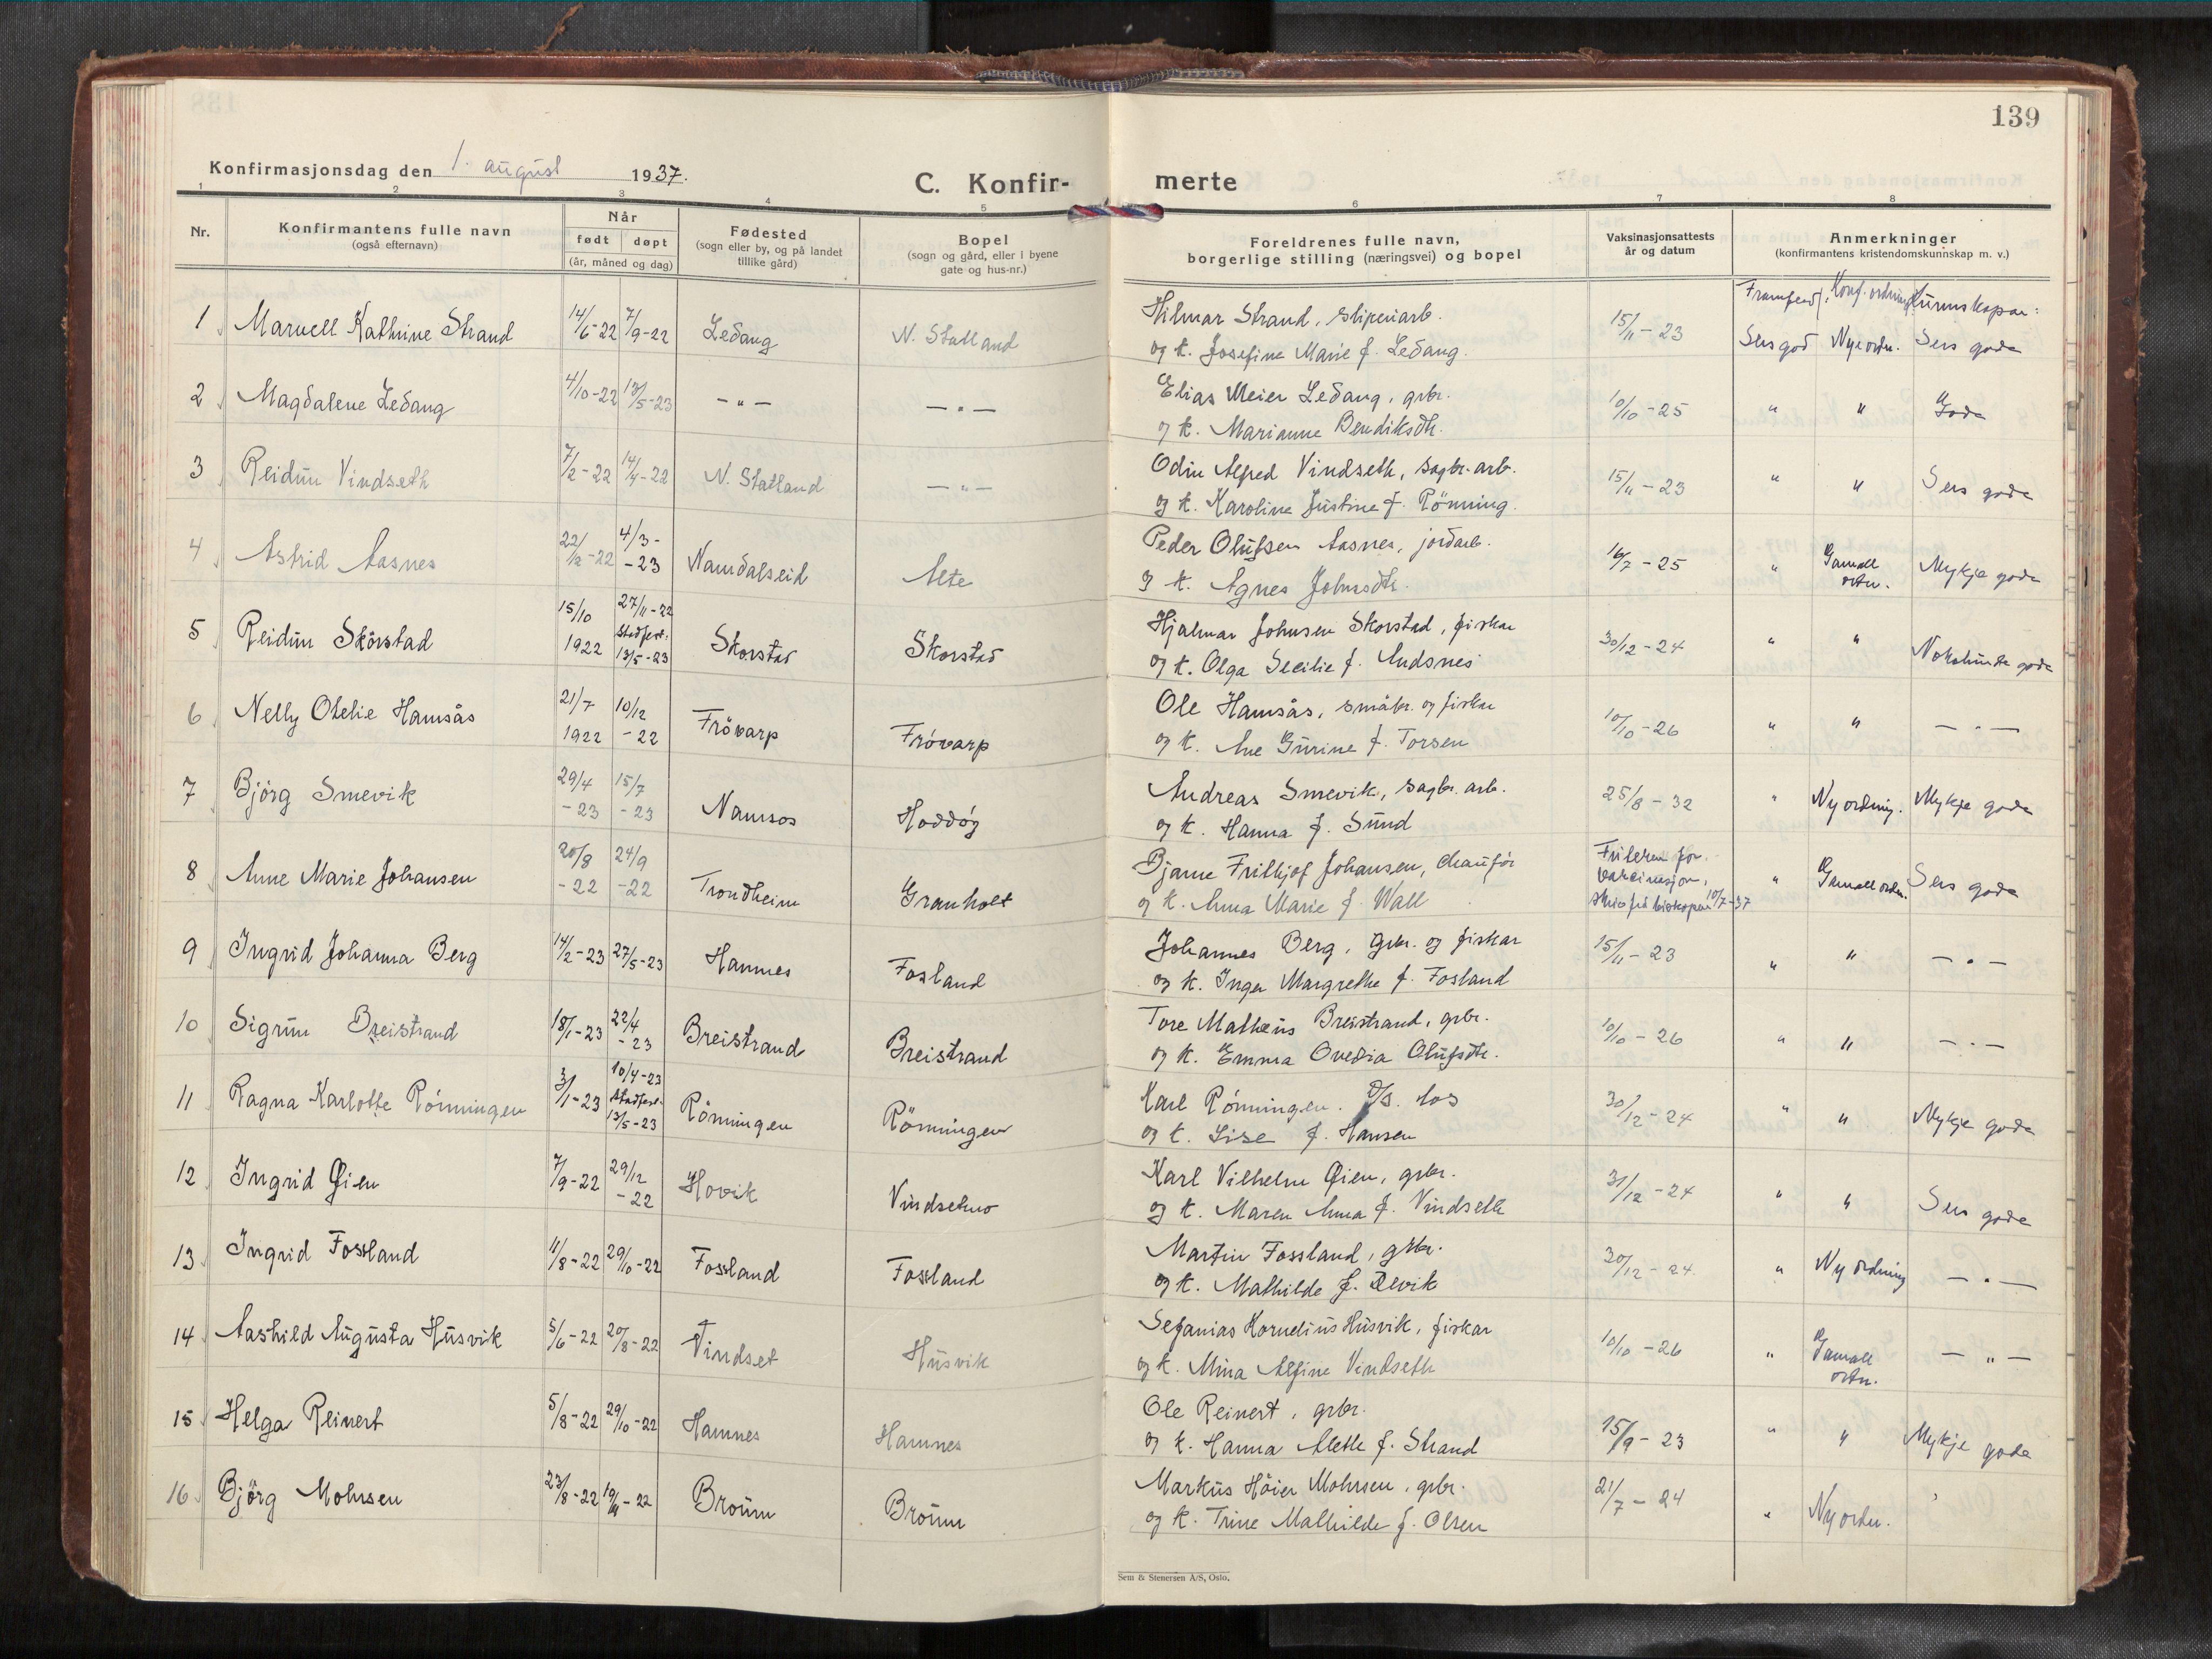 139
Konfirmasjonsdag den 1. august 1937.
C. Konfir- merte
1 2 3 4 5 6 7 8
Nr.
Konfirmantens fulle navn
(også efternavn)
Når
født døpt
(år, måned og dag)
Fødested
(sogn eller by, og på landet
tillike gård)
Bopel
(sogn og gård, eller i byene
gate og hus-nr.)
Foreldrenes fulle navn,
borgerlige stilling (næringsvei) og bopel
Vaksinasjonsattests
år og datum
Anmerkninger
(konfirmantens kristendomskunnskap m. v.)
Framferd: Konf. ordning Kunnskapar:
1 Maruell Kathrine Strand 14/6-22 7/9-22 Ledang N. Statland Hilmar Strand, sliperiarb. 15/11-23 Sers god Nye ordn. Sers gode
og k. Josefine Marie f. Ledang.
2 Magdalene Ledang 4/10-22 13/5-23 -"- -"- Elias Meier Ledang, grbr. 10/10-25 " " Gode
og k. Marianne Bendiksdtr.
3 Reidun Vindseth 7/2-22 14/4-22 N. Statland -"- Odin Alfred Vindseth, sagbr. arb. 15/11-23 " " Sers gode
og k. Karoline Justine f. Rönning.
4 Astrid Aasnes 22/12-22 4/3-
-23 Namdalseid Alte Peder Olufsen Aasnes, jordarb. 16/7-25 " Gamall
ordn. Mykje gode
og k. Agnes Johnsdtr.
5 Reidun Skörstad 15/10
1922 27/11-22
Stadfest:
13/5-23 Skorstad Skorstad Hjalmar Johnsen Skorstad, fiskar 30/12-24 " " Nokolunde gode
og k. Olga Secilie f. Andsnes
6 Nelly Otelie Hamsås 21/7
1922 10/12
-22 Frövarp Frövarp Ole Hamsås, småbr. og fiskar 10/10-26 " " -"-
og k. Ane Gurine f. Torsen
7 Bjórg Smevik 29/4
-23 15/7
-23 Namsos Hoddöy Andreas Smevik, sagbr. arb. 25/8-32 " Ny ordning. Mykje gode
og k. Hanna f. Sund
8 Anne Marie Johansen 20/8
-22 24/9
-22 Trondheim Granholt Bjarne Frithjof Johansen, chaufør Friteken for
vakcinasjon,
skriv frå biskopen 10/7-37 " Gamall ordn. Sers gode
og k. Anna Marie f. Wall
9 Ingrid Johanna Berg 14/2-23 27/5-23 Hamnes Fosland Johannes Berg, grbr. og fiskar 15/11-23 " " -"-
og k. Inga Margrethe f. Fosland
10 Sigrun Breistrand 18/1-23 22/4
-23 Breistrand Breistrand Tore Matheus Breistrand, grbr. 10/10-26 " " -"-
og k. Emma Ovedia Olufsdtr.
11 Ragna Karlotte Rónningen 3/1-23 10/4-23
Stadfest.
13/5-23 Rönningen Rönningen Karl Rónningen. D/S. los 30/12-24 " " Mykje gode
og k. Lise f. Hansen
12 Ingrid Øien 7/9-22 29/12
-22 Hovik Vindsetmo Karl Vilhelm Øien, grbr. 31/12-24 " " Sers gode
og k. Maren Anna f. Vindseth
13 Ingrid Fossland 11/8-22 29/10-22 Fossland Fossland Martin Fossland, grbr. 30/12-24 " Ny ordning -"-
og k. Mathilde f. Elvik
14 Aashild Augusta Husvik 5/6-22 20/8-22 Vindset Husvik Sefanias Kornelius Husvik, fiskar 10/10-26 " Gamall
ordn. -"-
og k. Mina Alfine Vindseth
15 Helga Reinert 5/8-22 29/10-22 Hamnes Hamnes Ole Reinert, grbr. 15/9-23 " " Mykje gode
og k. Hanna Aleth f. Strand
16 Björg Mohrsen 23/8-22 19/11-22 Bröum Bröum Markus Höier Mohrsen, grbr. 21/7-24 " Ny ordn.
og k. Trine Mathilde f. Olsen
Sem & Stenersen A/S, Oslo.